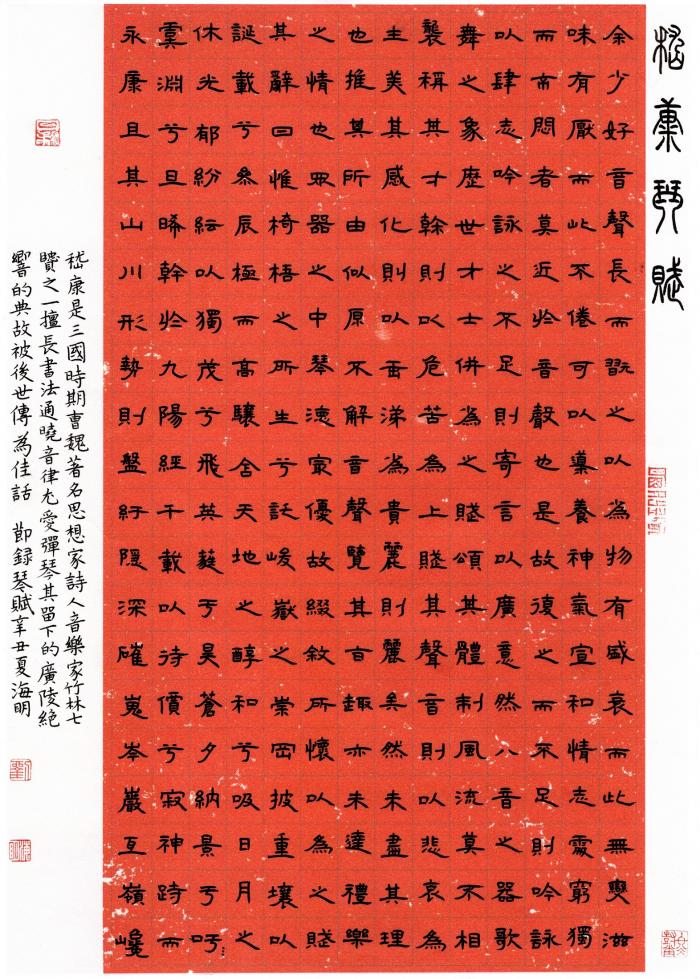 嵇康琴賦
余少好音聲長而翫之以為物有盛衰而此無變滋
味有厭而此不倦可以導養神氣宣和情志處窮獨
而不悶者莫近於音聲也是故復之而不足則吟詠
以肆志吟詠之不足則寄言以廣意然八音之器歌
舞之象歷世才士併為之賦頌其體制風流莫不相
襲稱其才幹則以危苦為上賦其聲音則以悲哀為
主美其感化則以垂涕為貴麗則麗矣然未盡其理
也推其所由似原不解音聲覽其旨趣亦未達禮樂
之情也眾器之中琴德最優故綴敘所懷以為之賦
其辭曰惟椅梧之所生兮託峻嶽之崇岡披重壤以
誕載兮參辰極而高驤含天地之醇和兮吸日月之
休光郁紛紜以獨茂兮飛英蕤于昊蒼夕納景于吁
虞淵兮旦晞幹於九陽經千載以待價兮寂神跱而
永康且其山川形勢則盤紆隱深磪嵬岑巖互嶺巉
嵇康是三國時期曹魏著名思想家詩人音樂家竹林七
賢之一擅長書法通曉音律尤愛彈琴其留下的廣陵絕
響的典故被後世傳為佳話 節錄琴賦辛丑夏海明